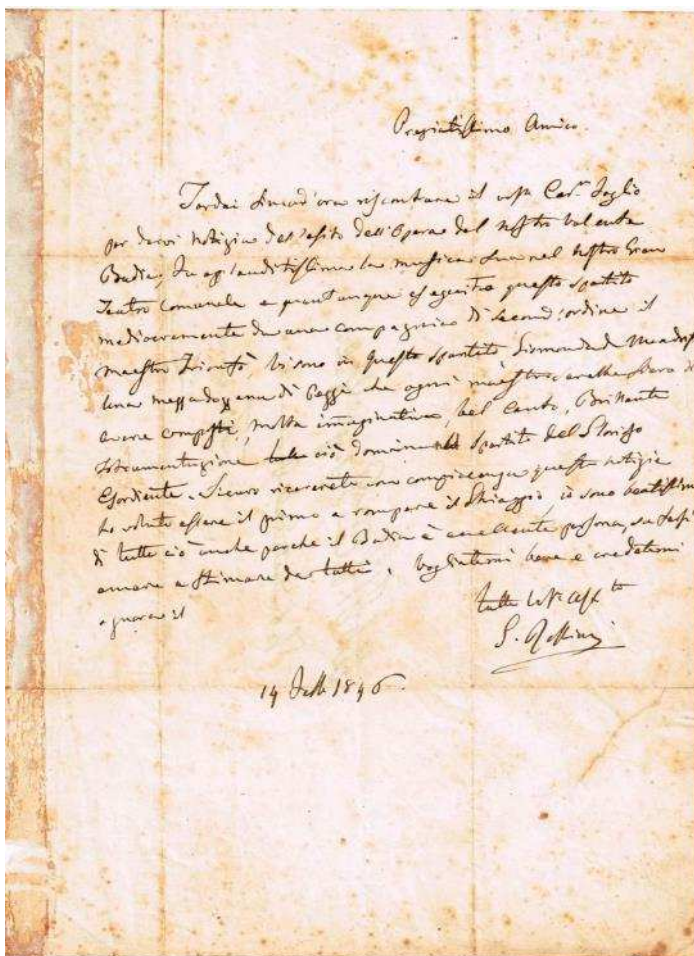 Pregiatissimo Amico.
Tardai sinad'ora riscontrare il vost. Car.mo foglio
per darvi notizia dell'esito dell'Opera del nostro valente
Badia, fu applauditissima la musica sua nel nostro Gran
Teatro Comunale e quantunque eseguito questo spartito
mediocremente da una compagnia di second'ordine il
maestro Trionfò. Vi sono in questo spartito Gismonda di Mendrisi
una mezza dozzena di Pezzi che ogni maestro sarebbe
avere composti, molta immaginativa, bel Canto, Brillante
Istrumentazione tutto ciò domina spartito del
Esordiente. Sicuro riceverete con compiacenza queste notizie
ho voluto essere il primo a rompere il Ghiaccio, io sono beatissimo
di tutto ciò anche perche il Badia è eccellente persona, su fassi
amare e stimare da tutti. Vogliatemi bene e credetemi
ognora il
tutto Vost. Aff.to
G. Rossini
14 1846.